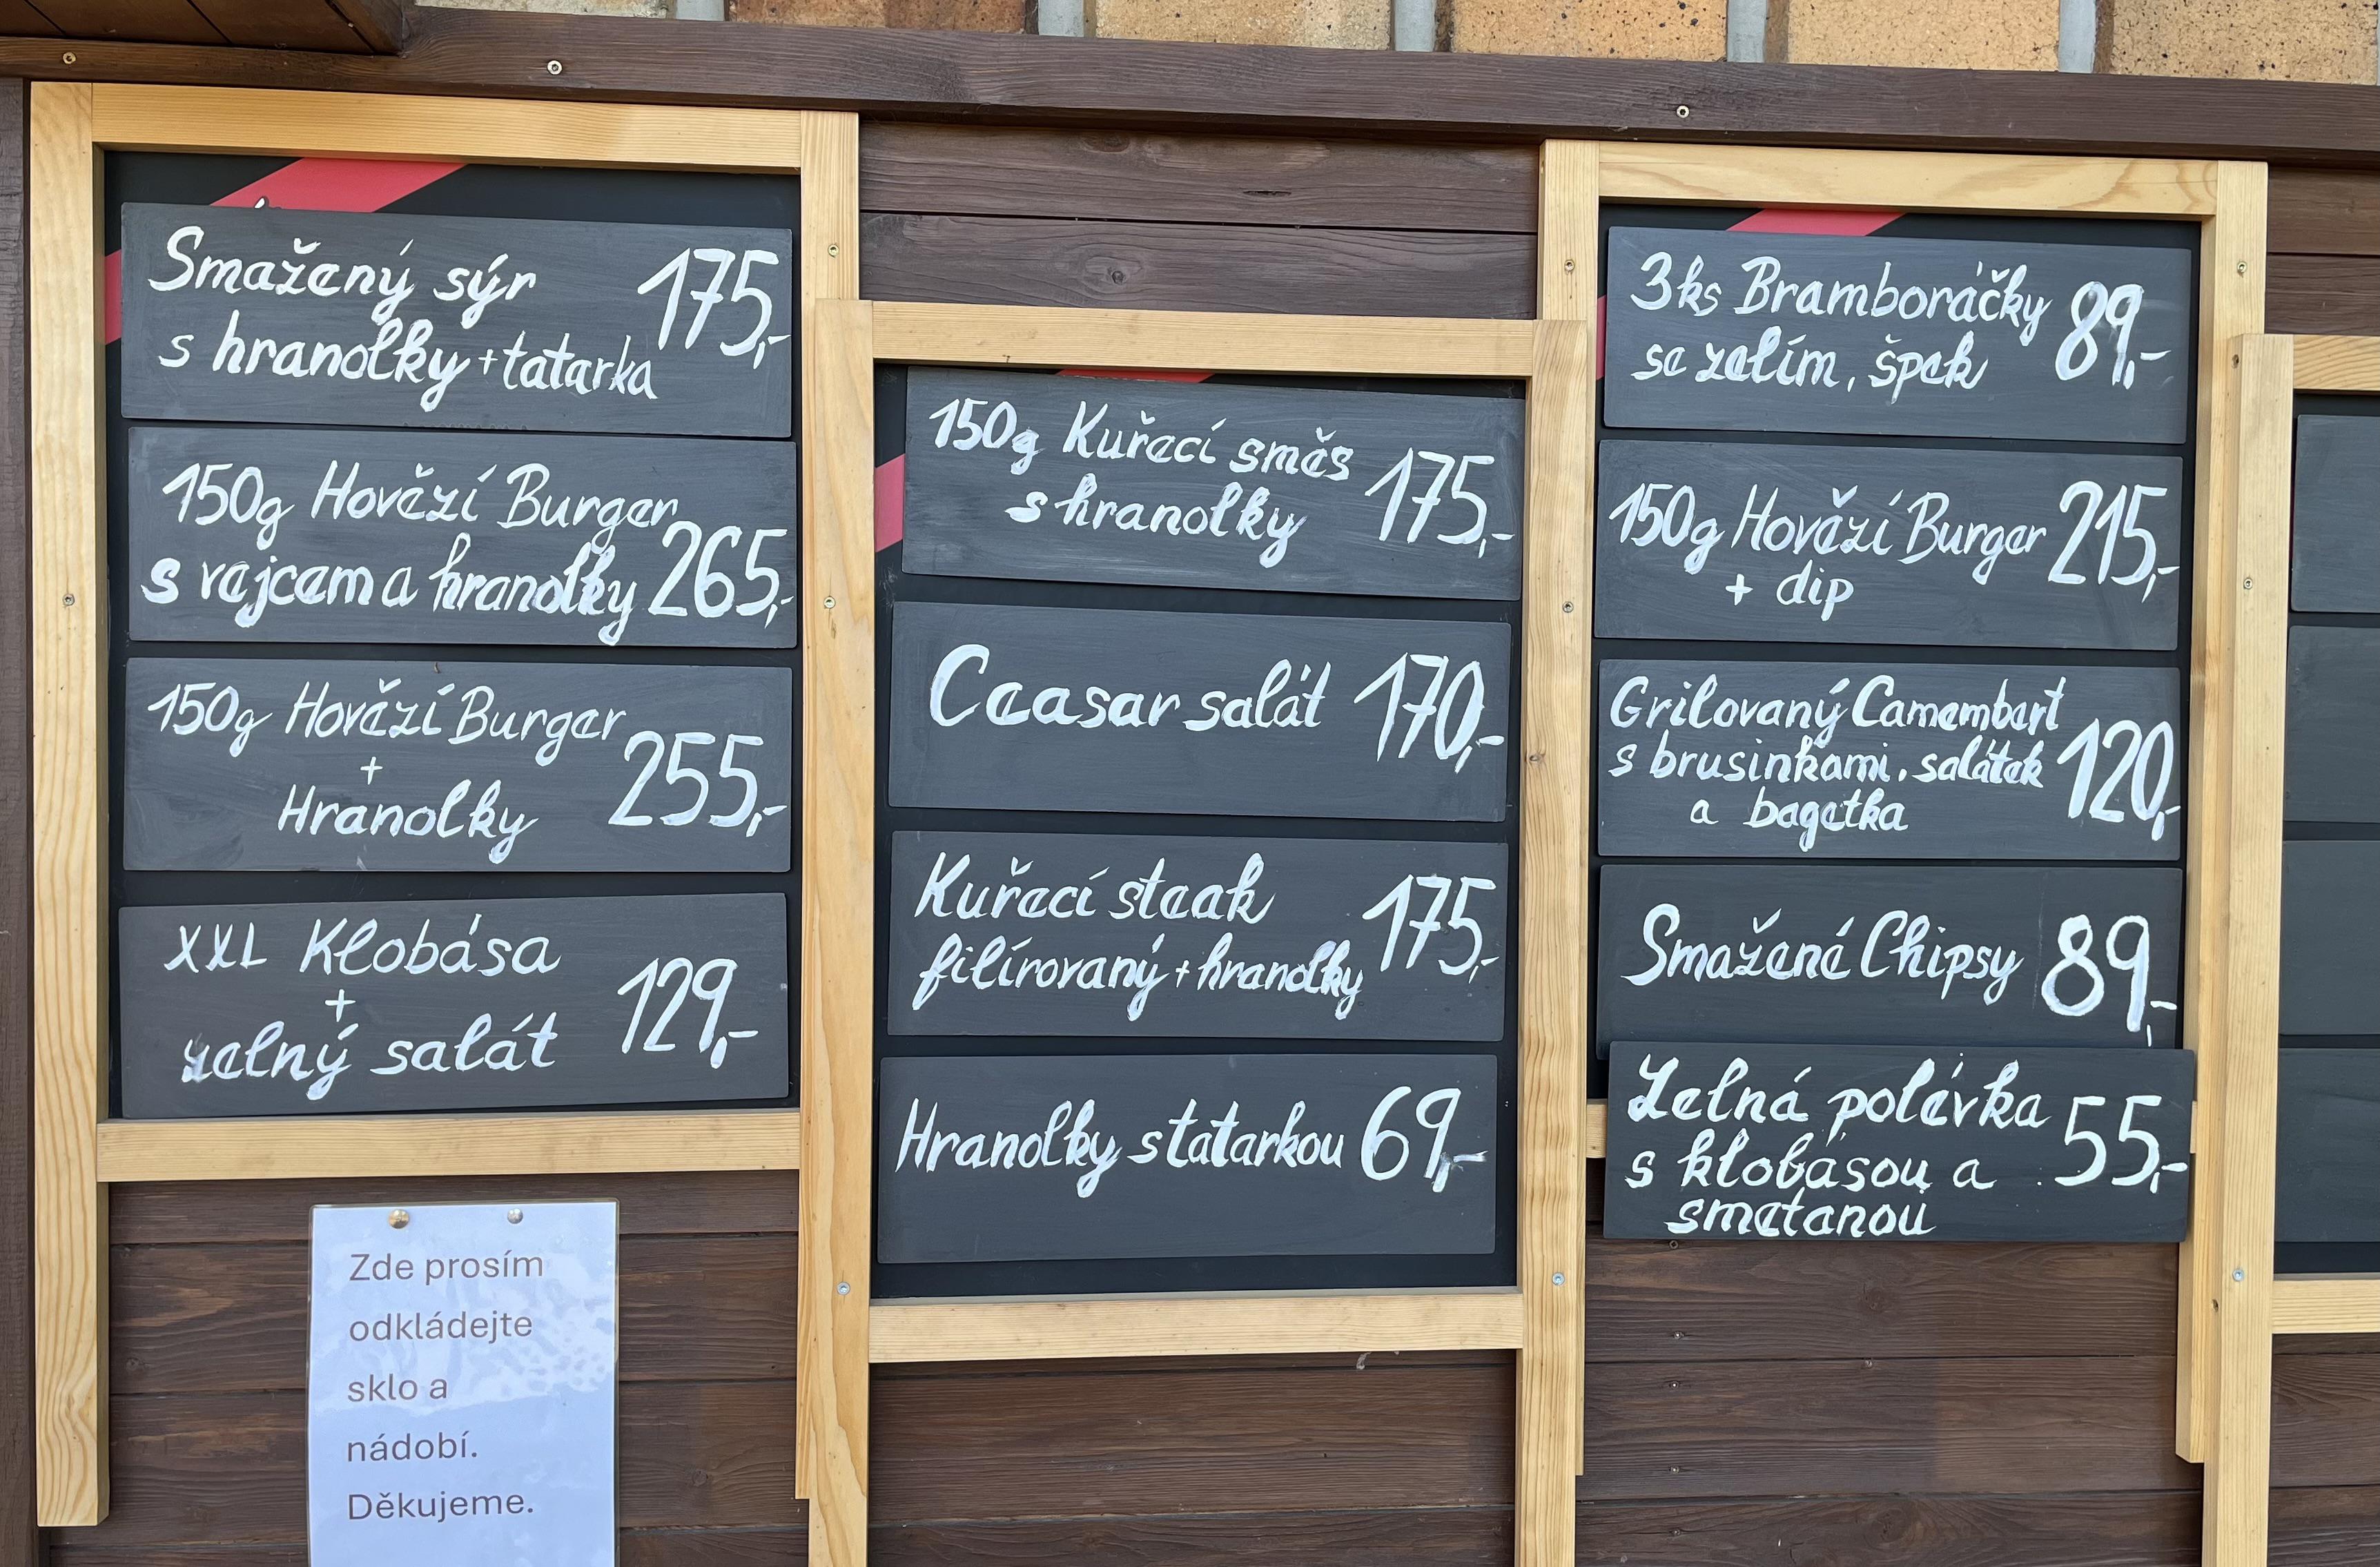 Smažený sýr 175,-
s hranolky + tatarka
150g Hovězí Burger
s vejcem a hranolky 265,-
150g Hovězí Burger
+
Hranolky 255,-
XXL Klobása
+
zelný salát 129,-
Zde prosím
odkládejte
sklo a
nádobí.
Děkujeme.
150g Kuřecí směs
s hranolky 175,-
Ceasar salát 170,-
Kuřecí steak
filírovaný + hranolky 175,-
Hranolky s tatarkou 69,-
3ks Bramboráčky
se zelím, špek 89,-
150g Hovězí Burger 215,-
+ dip
Grilovaný Camembert
s brusinkami, salátek 120,-
a bagetka
Smažené Chipsy 89,-
Zelná polévka
s klobásou a 55,-
smetanou